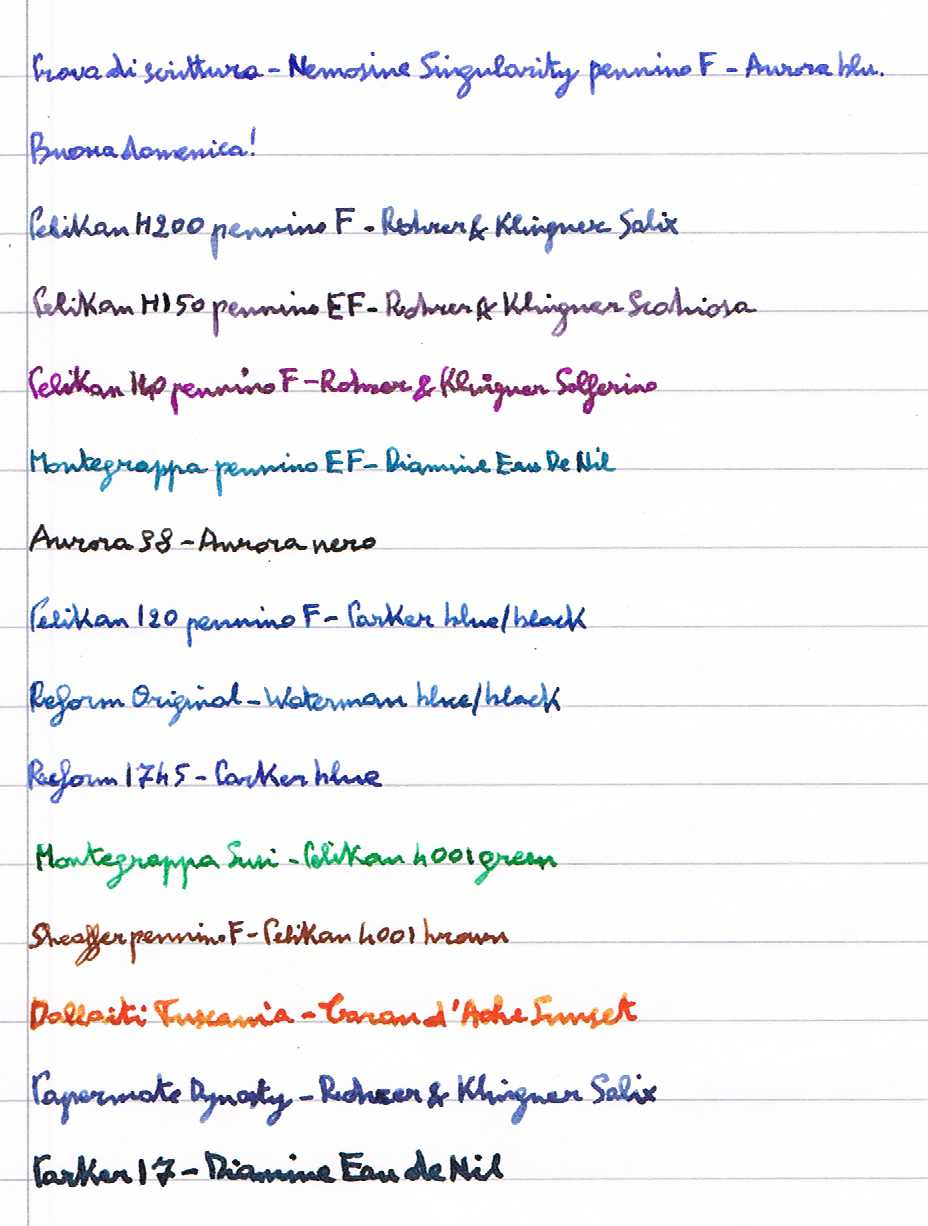 Prova di scrittura - Nemosine Singularity pennino F - Aurora blu.
Buona domenica!
Pelikan M200 pennino F - Rohrer & Klingner Salix
Pelikan M150 pennino EF - Rohrer & Klingner Scabiosa
Pelikan 140 pennino F - Rohrer & Klingner Solferino
Montegrappa pennino EF - Diamine Eau De Nil
Aurora 88 - Aurora nero
Pelikan 120 pennino F - Parker blue/black
Reform Original - Waterman blue/black
Reform 1745 - Parker blue
Montegrappa Susi - Pelikan 4001 green
Sheaffer pennino F - Pelikan 4001 brown
Dallaiti Tuscania - Caran d'Ache Sunset
Papermate Dynasty - Rohrer & Klingner Salix
Parker 17 - Diamine Eau de Nil